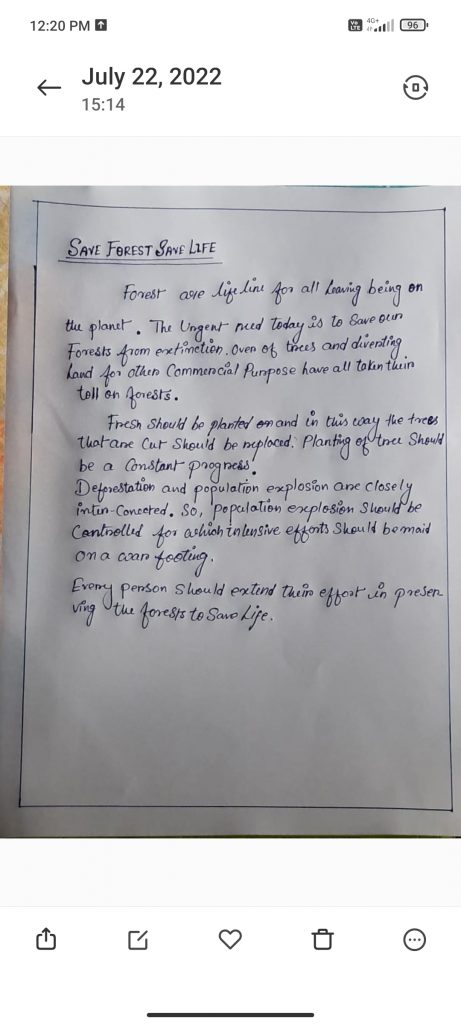 12:20 PM
Vo LTE 4G+ 96
July 22, 2022
15:14
SAVE FOREST SAVE LIFE
Forest are life line for all leaving being on
the planet. The Urgent need today is to Save our
Forests from extinction. Over of trees and diverting
Land for other Commercial Purpose have all taken their
toll on forests.
Fresh Should be planted on and in this way the trees
that are Cut Should be replaced. Planting of tree Should
be a Constant progress.
Deforestation and population explosion are closely
intin-Concoted. So, Population explosion Should be
Controlled for which intensive efforts Should be maid
on a war footing.
Every person Should extend their effort in preser
ving the forests to Save Life.